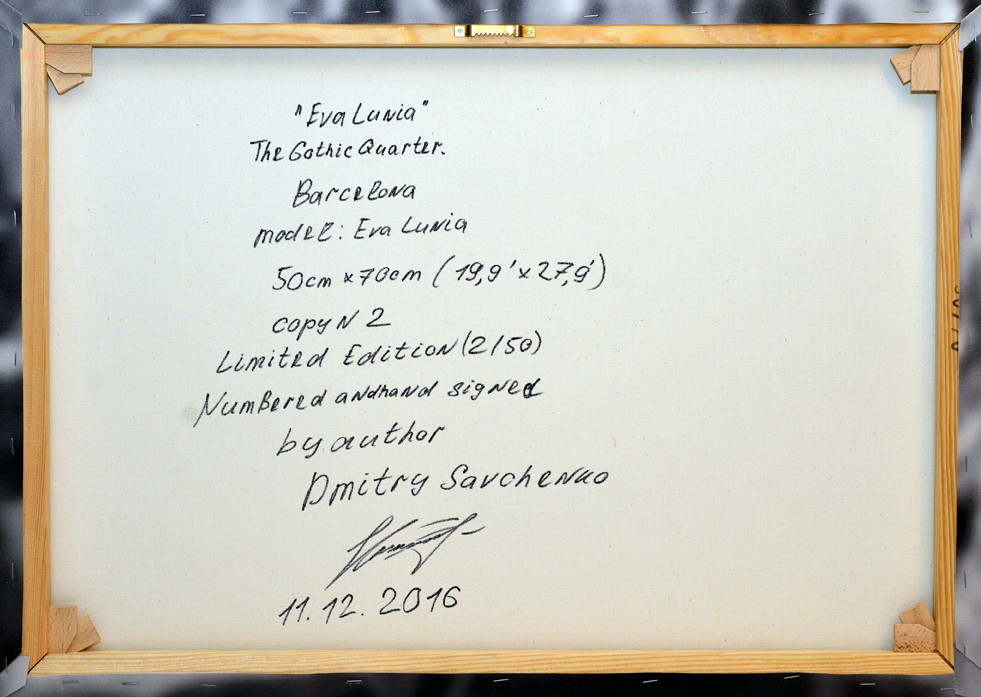 "Eva Lunia"
The Gothic Quarter.
Barcelona
model: Eva Lunia
50cm x 70cm (19,9' x 27,9')
copy N 2
Limited Edition (2/50)
Numbered and hand signed
by author
Dmitry Savchenko
11.12.2016